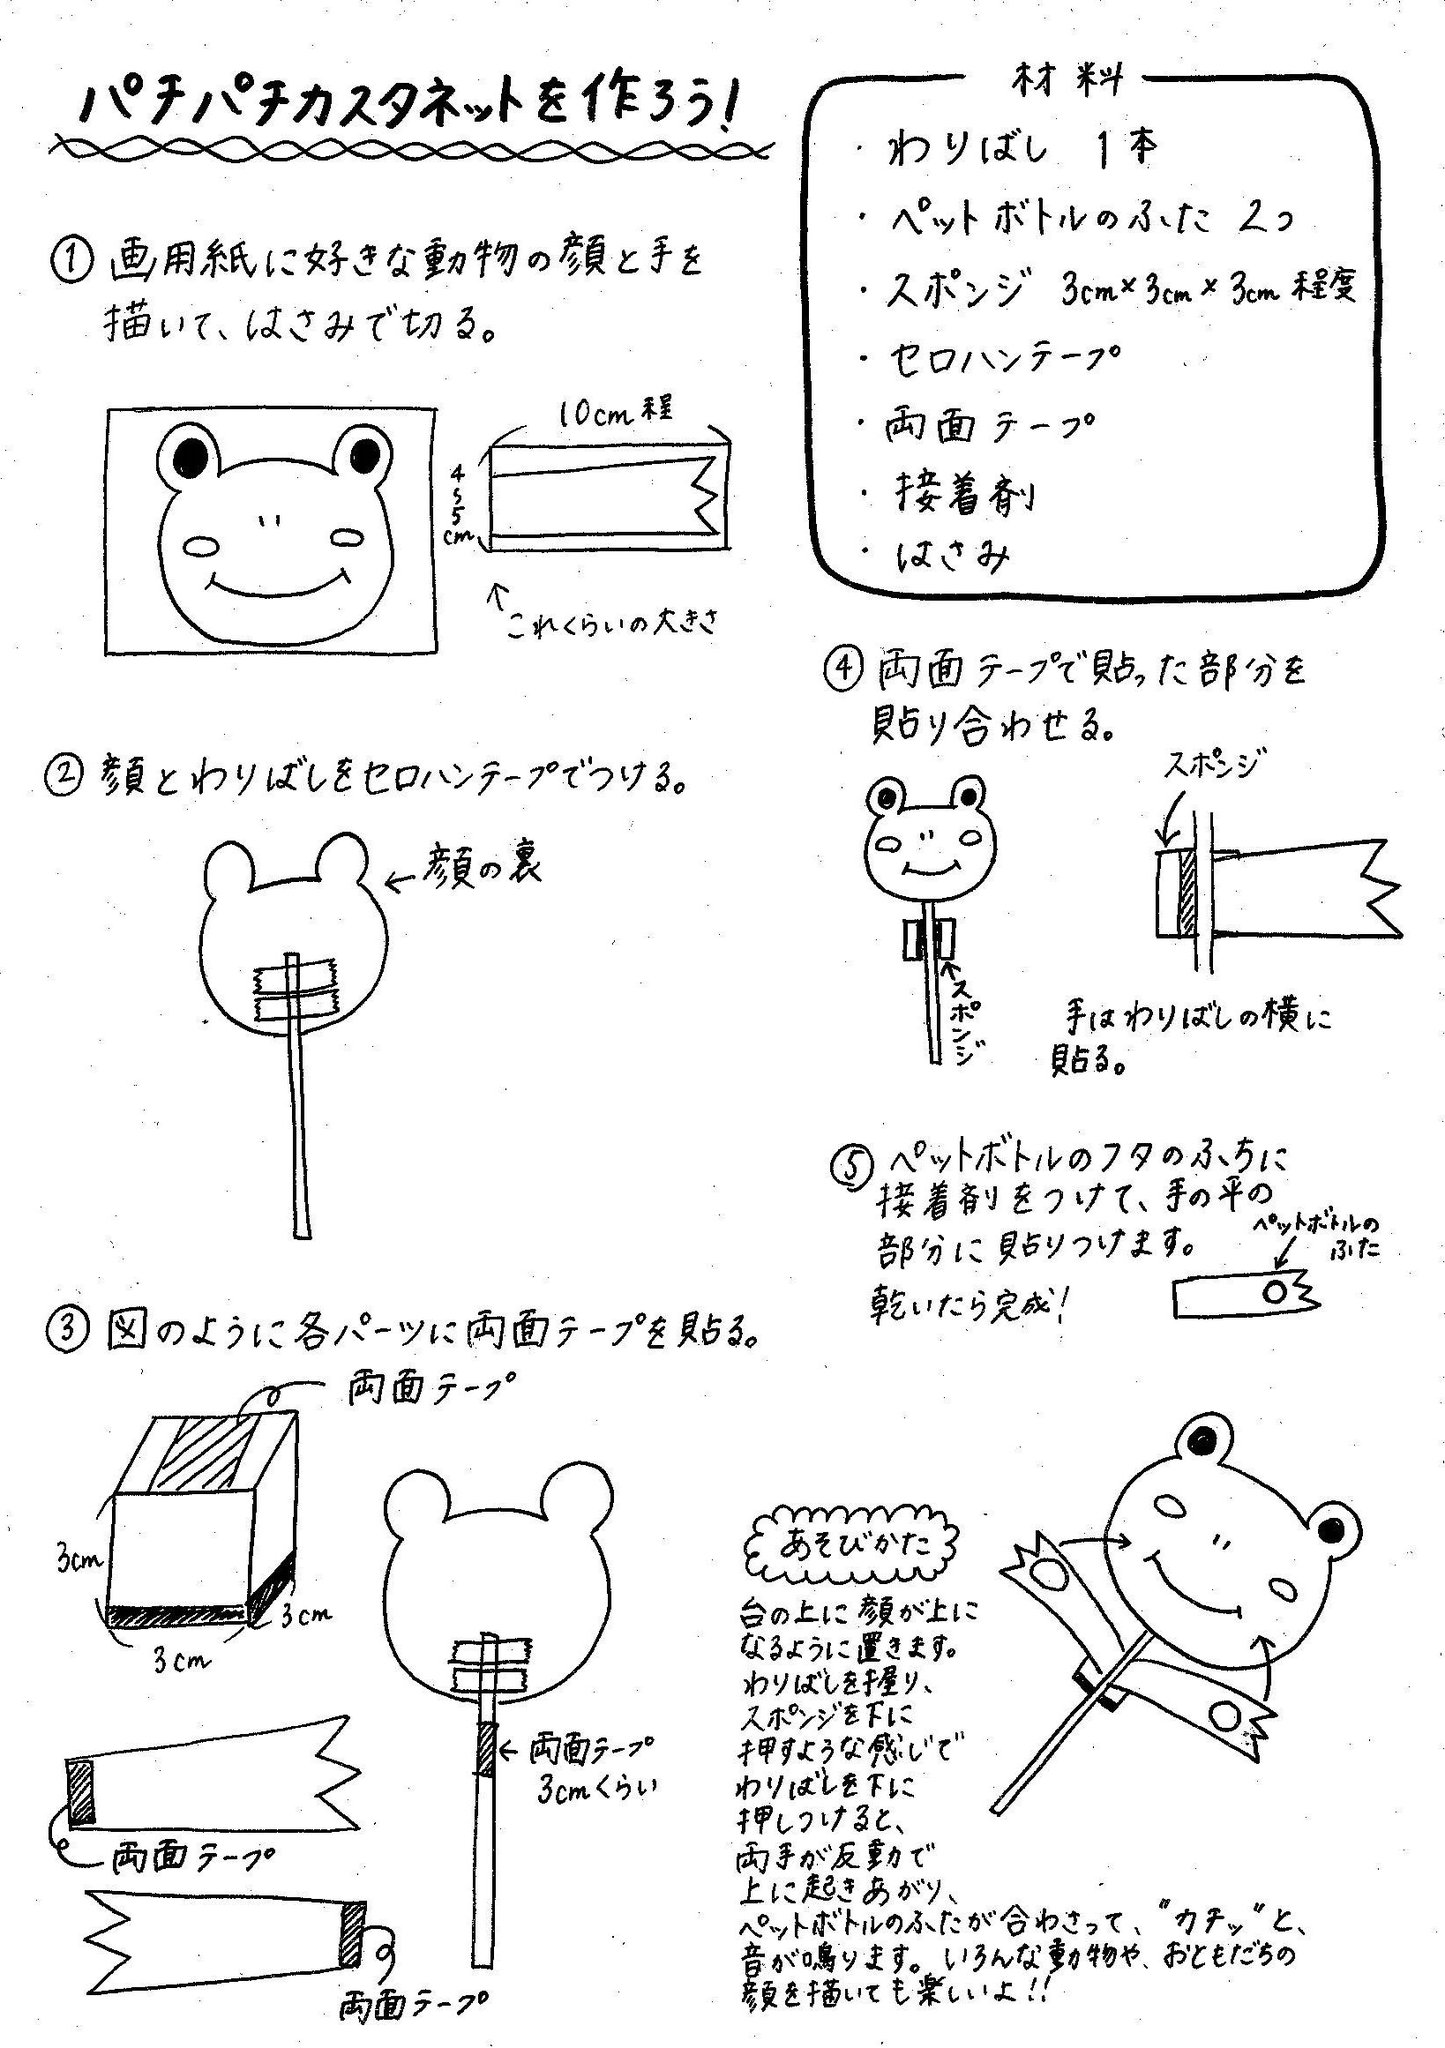 パチパチカスタネットを作ろう!
材料
・わりばし 1本
・ペットボトルのふた 2つ
・スポンジ 3cm×3cm×3cm程度
・セロハンテープ
・両面テープ
・接着剤
・はさみ
① 画用紙に好きな動物の顔と手を
描いて、はさみで切る。
10cm程
4〜5cm
↑これくらいの大きさ
② 顔とわりばしをセロハンテープでつける。
←顔の裏
③ 図のように各パーツに両面テープを貼る。
両面テープ
3cm
3cm
3cm
←両面テープ
3cmくらい
両面テープ
両面テープ
④ 両面テープで貼った部分を
貼り合わせる。
スポンジ
スポンジ
手はわりばしの横に
貼る。
⑤ ペットボトルのフタのふちに
接着剤をつけて、手の平の
部分に貼りつけます。
乾いたら完成!
ペットボトルの
ふた
あそびかた
台の上に顔が上に
なるように置きます。
わりばしを握り、
スポンジを下に
押すような感じで
わりばしを下に
押しつけると、
両手が反動で
上に起きあがり、
ペットボトルのふたが合わさって、"カチッ"と、
音が鳴ります。いろんな動物や、おともだちの
顔を描いても楽しいよ!!